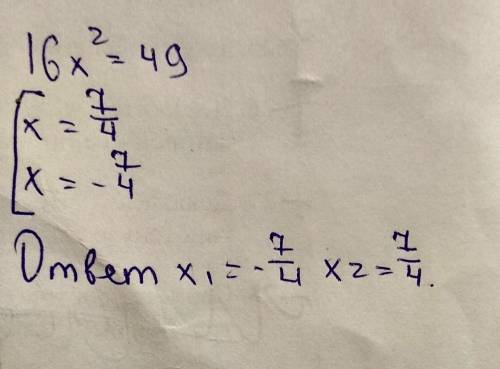 16x² = 49
[x = 7/4
x = -7/4
Ответ x₁ = -7/4 x2 = 7/4.